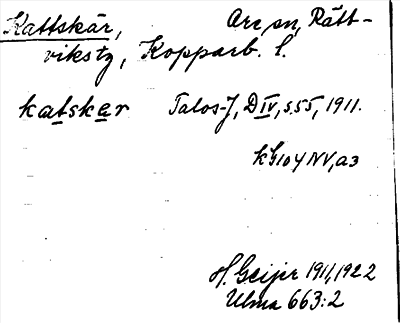 Kattskär, Ore sn, Rätt-
vikstg, Kopparb. l.
katsker Talos-J, DIV, s.55, 1911.
kG104NV, a3
H. Geijer 1911, 1922
Ulma 663:2